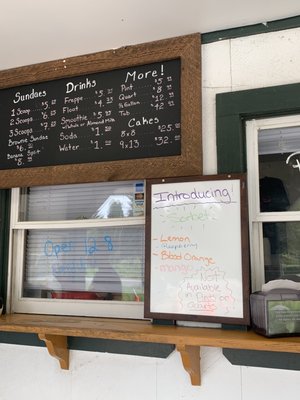 Sundaes
1 Scoop $5.00
2 Scoops $6.00
3 Scoops $7.00
Brownie Sundae
$6.00
Banana Split
$8.00
Drinks
Frappe $5.00
Float $4.00
Smoothie $5.00
w/Whole or Almond Milk
Soda $1.00
Water $1.00
More!
Pint $5.00
Quart $8.00
1/2 Gallon $12.00
Tub $42.00
Cakes
8x8 $25.00
9x13 $32.00
Open 12-8
Introducing
Sorbet
- Lemon
- Raspberry
- Blood Orange
- mango
Not
Available
in Pints or
Quarts